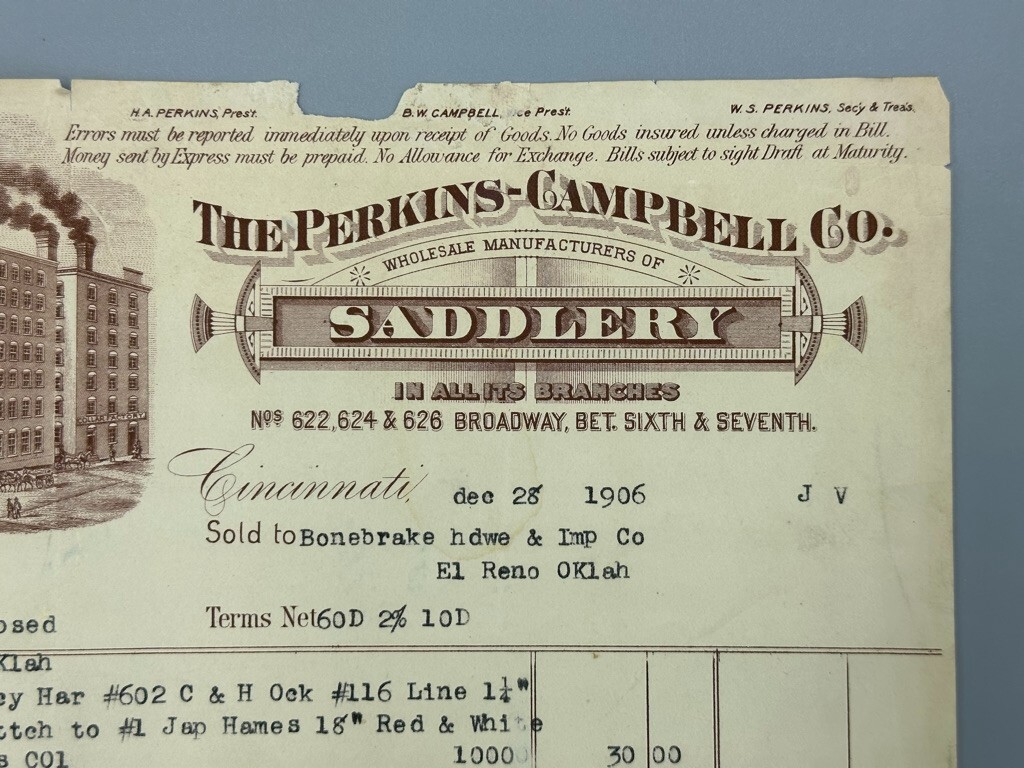 H.A. PERKINS, Prest. B.W. CAMPBELL, ce Prest. W. S. PERKINS, Secy & Treas.
Errors must be reported immediately upon receipt of Goods. No Goods insured unless charged in Bill.
Money sent by Express must be prepaid. No Allowance for Exchange. Bills subject to sight Draft at Maturity.
THE PERKINS-CAMPBELL CO.
WHOLESALE MANUFACTURERS OF
SADDLERY
IN ALL ITS BRANCHES
Nos 622, 624 & 626 BROADWAY, BET. SIXTH & SEVENTH.
COLLAR FACTORY
Cincinnati, dec 28 1906 J V
Sold to Bonebrake hdwe & Imp Co
El Reno OKlah
Terms Net 60D 2% 10D
osed
Klah
cy Har #602 C & H Ock #116 Line 1¼"
ttch to #1 Jap Hames 18" Red & White
s CO1 1000 30 00